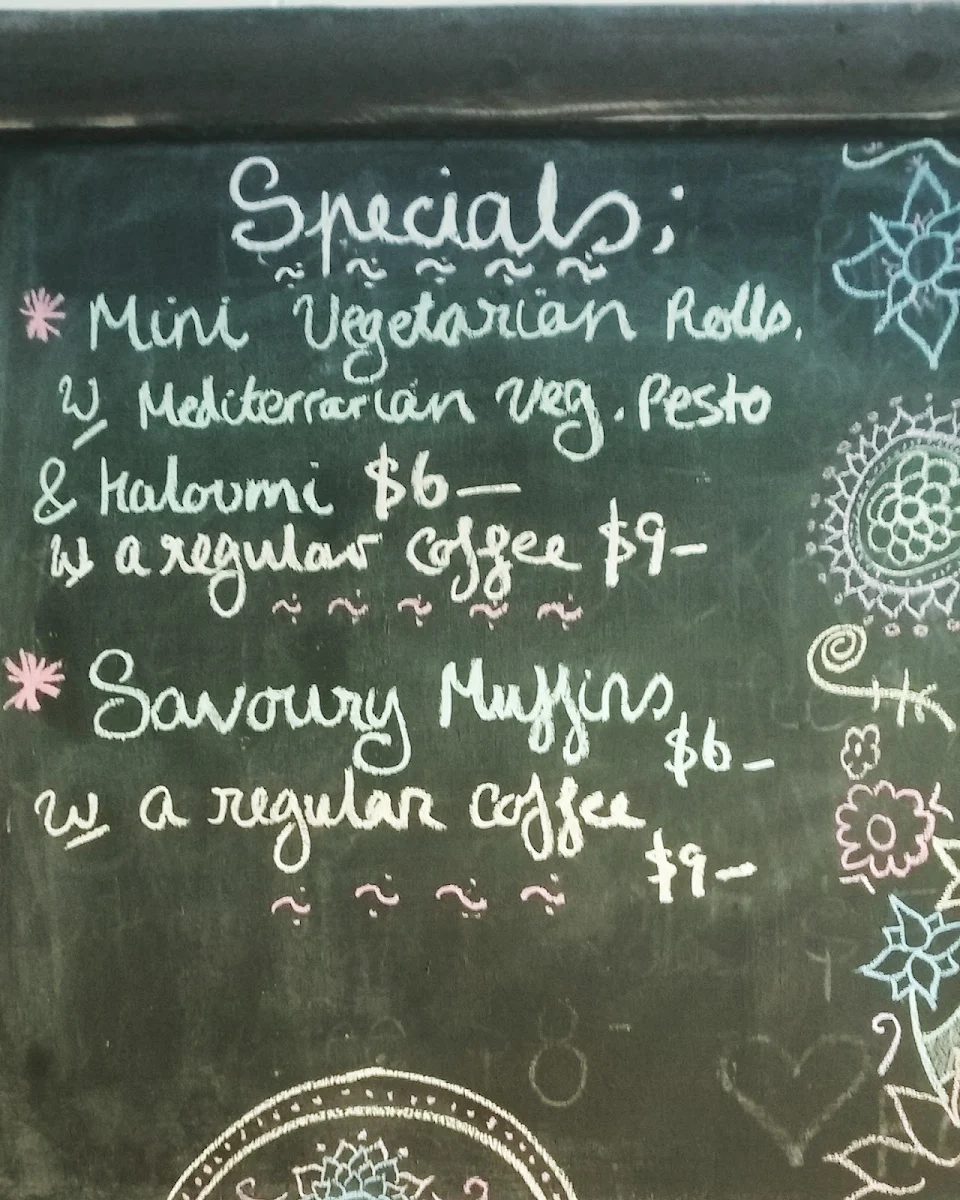 Specials;
* Mini Vegetarian Rolls.
w Mediterrarian veg. Pesto
& Haloumi $6—
w a regular coffee $9-
* Savoury Muffins
$6-
w a regular coffee
$9-